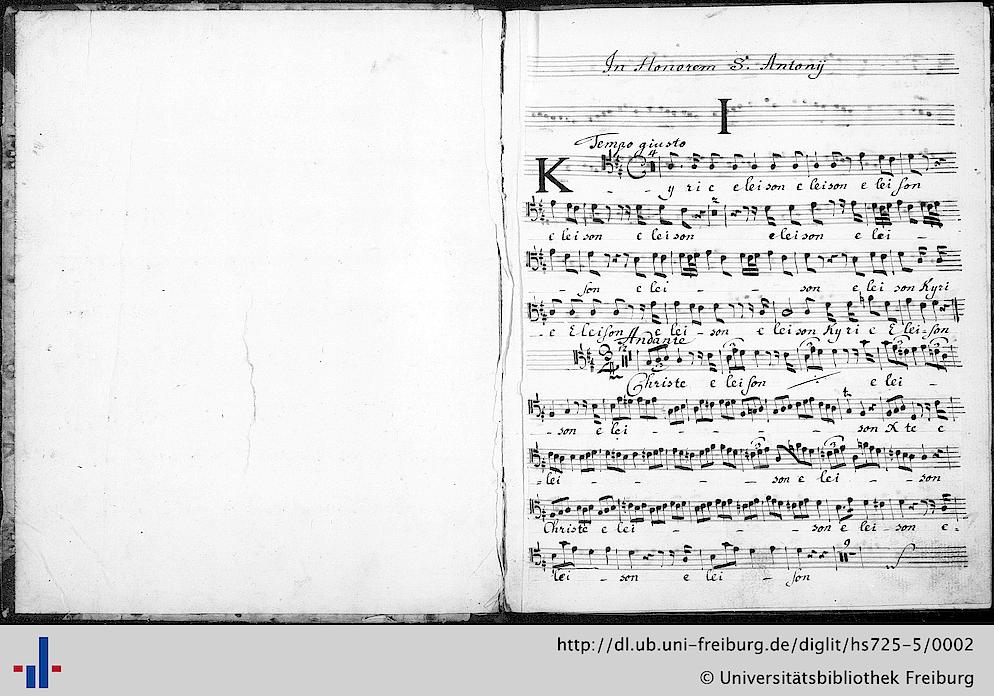 In Honorem S. Antonij
I
Tempo giusto
4
K - - y ri e elei son e leison e lei son
e lei son e lei son e lei son e lei -
- son e lei - - - son e lei son Kyri
- e Eleison e lei - son e leison Kyri e Elei-son
Andante
12
Christe e leison e lei -
- son e lei - - - - - son Xte e
- lei - - - - son e lei - - son
Christe e lei - - - - - son e lei - son e -
9
lei - son e lei - son
http://dl.ub.uni-freiburg.de/diglit/hs725-5/0002
© Universitätsbibliothek Freiburg